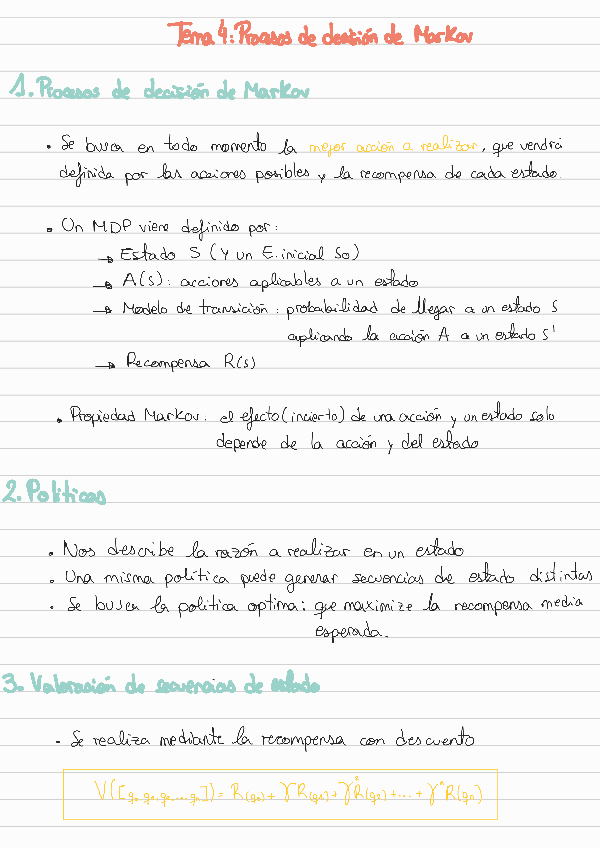 Tema 4: Procesos de decisión de Markov
1. Procesos de decisión de Markov
• Se busca en todo momento la mejor acción a realizar, que vendrá
definida por las acciones posibles y la recompensa de cada estado.
• Un MDP viene definido por:
→ Estado S (Y un E. inicial S0)
→ A(s): acciones aplicables a un estado
→ Modelo de transición: probabilidad de llegar a un estado S
aplicando la acción A a un estado S'
→ Recompensa R(s)
• Propiedad Markov: el efecto (incierto) de una acción y un estado solo
depende de la acción y del estado
2. Politicas
• Nos describe la razón a realizar en un estado
• Una misma política puede generar secuencias de estado distintas
• Se busca la politica optima: que maximize la recompensa media
esperada.
3. Valoración de secuencias de estado
- Se realiza mediante la recompensa con descuento
V([q0, q1, q2, ... qn]) = R(q0) + γR(q1) + γ²R(q2) + ... + γⁿR(qn)